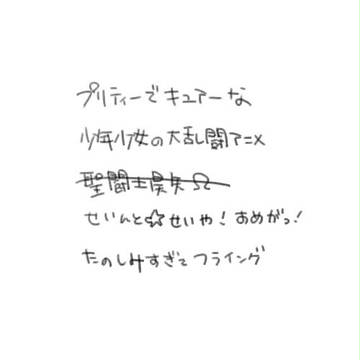 プリティーでキュアーな
少年少女の大乱闘アニメ
聖闘士星矢Ω
せいんと☆せいや！おめがっ！
たのしみすぎてフライング